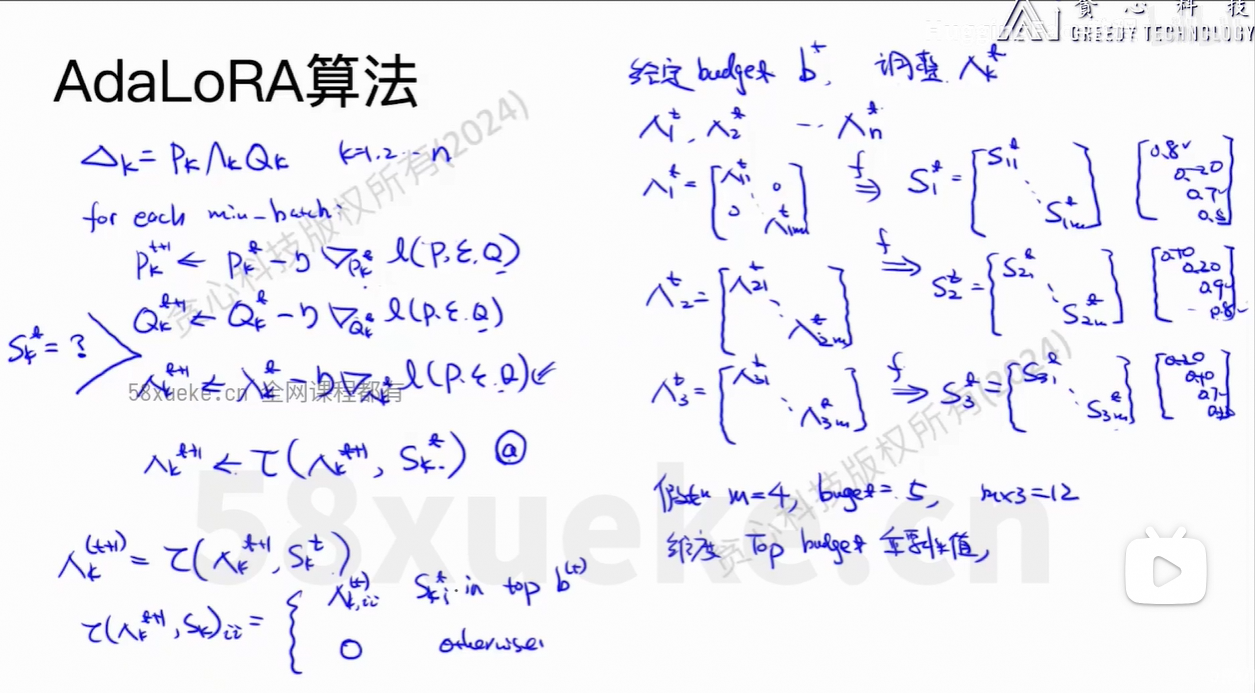 贪心科技
GREEDY TECHNOLOGY
AdaLoRA算法
Δₖ = Pₖ Λₖ Qₖ k=1.2...n
for each mini-batch:
Pₖᵗ⁺¹ ← Pₖᵗ - η ∇Pₖᵗ l(P, Ɛ, Q)
Qₖᵗ⁺¹ ← Qₖᵗ - η ∇Qₖᵗ l(P. Ɛ. Q)
Sₖᵗ = ?
Λₖᵗ⁺¹ ← Λₖᵗ - η ∇Λₖᵗ l(P. Ɛ. Q)
58xueke.cn 全网课程都有
Λₖᵗ⁺¹ ← τ(Λₖᵗ⁺¹, Sₖᵗ) ⓐ
Λₖ⁽ᵗ⁺¹⁾ = τ(Λₖᵗ⁺¹, Sₖᵗ)
τ(Λₖᵗ⁺¹, Sₖ)ᵢᵢ = { Λₖ,ᵢᵢ⁽ᵗ⁾ Sₖᵢᵗ in top b⁽ᵗ⁾
0 otherwise.
给定 budget bᵗ, 调整 Λₖᵗ
Λ₁ᵗ, Λ₂ᵗ ... Λₙᵗ
Λ₁ᵗ = [Λ₁₁ᵗ 0 0 ⋱ Λ₁ₘᵗ] f ⇒ S₁ᵗ = [S₁₁ᵗ ⋱ S₁ₘᵗ] [0.8 0.20 0.7
Λ₂ᵗ = [Λ₂₁ᵗ ⋱ Λ₂ₘᵗ] f ⇒ S₂ᵗ = [S₂₁ᵗ ⋱ S₂ₘᵗ] [0.10 0.20 0.9 0.8]
Λ₃ᵗ = [Λ₃₁ᵗ ⋱ Λ₃ₘᵗ] f ⇒ S₃ᵗ = [S₃₁ᵗ ⋱ S₃ₘᵗ] [0.20 0.10 0.7
假定 m=4, buget= 5, m×3=12
Top budget 重要性值,
58xueke.cn
贪心科技版权所有(2024)
贪心科技版权所有(2024)